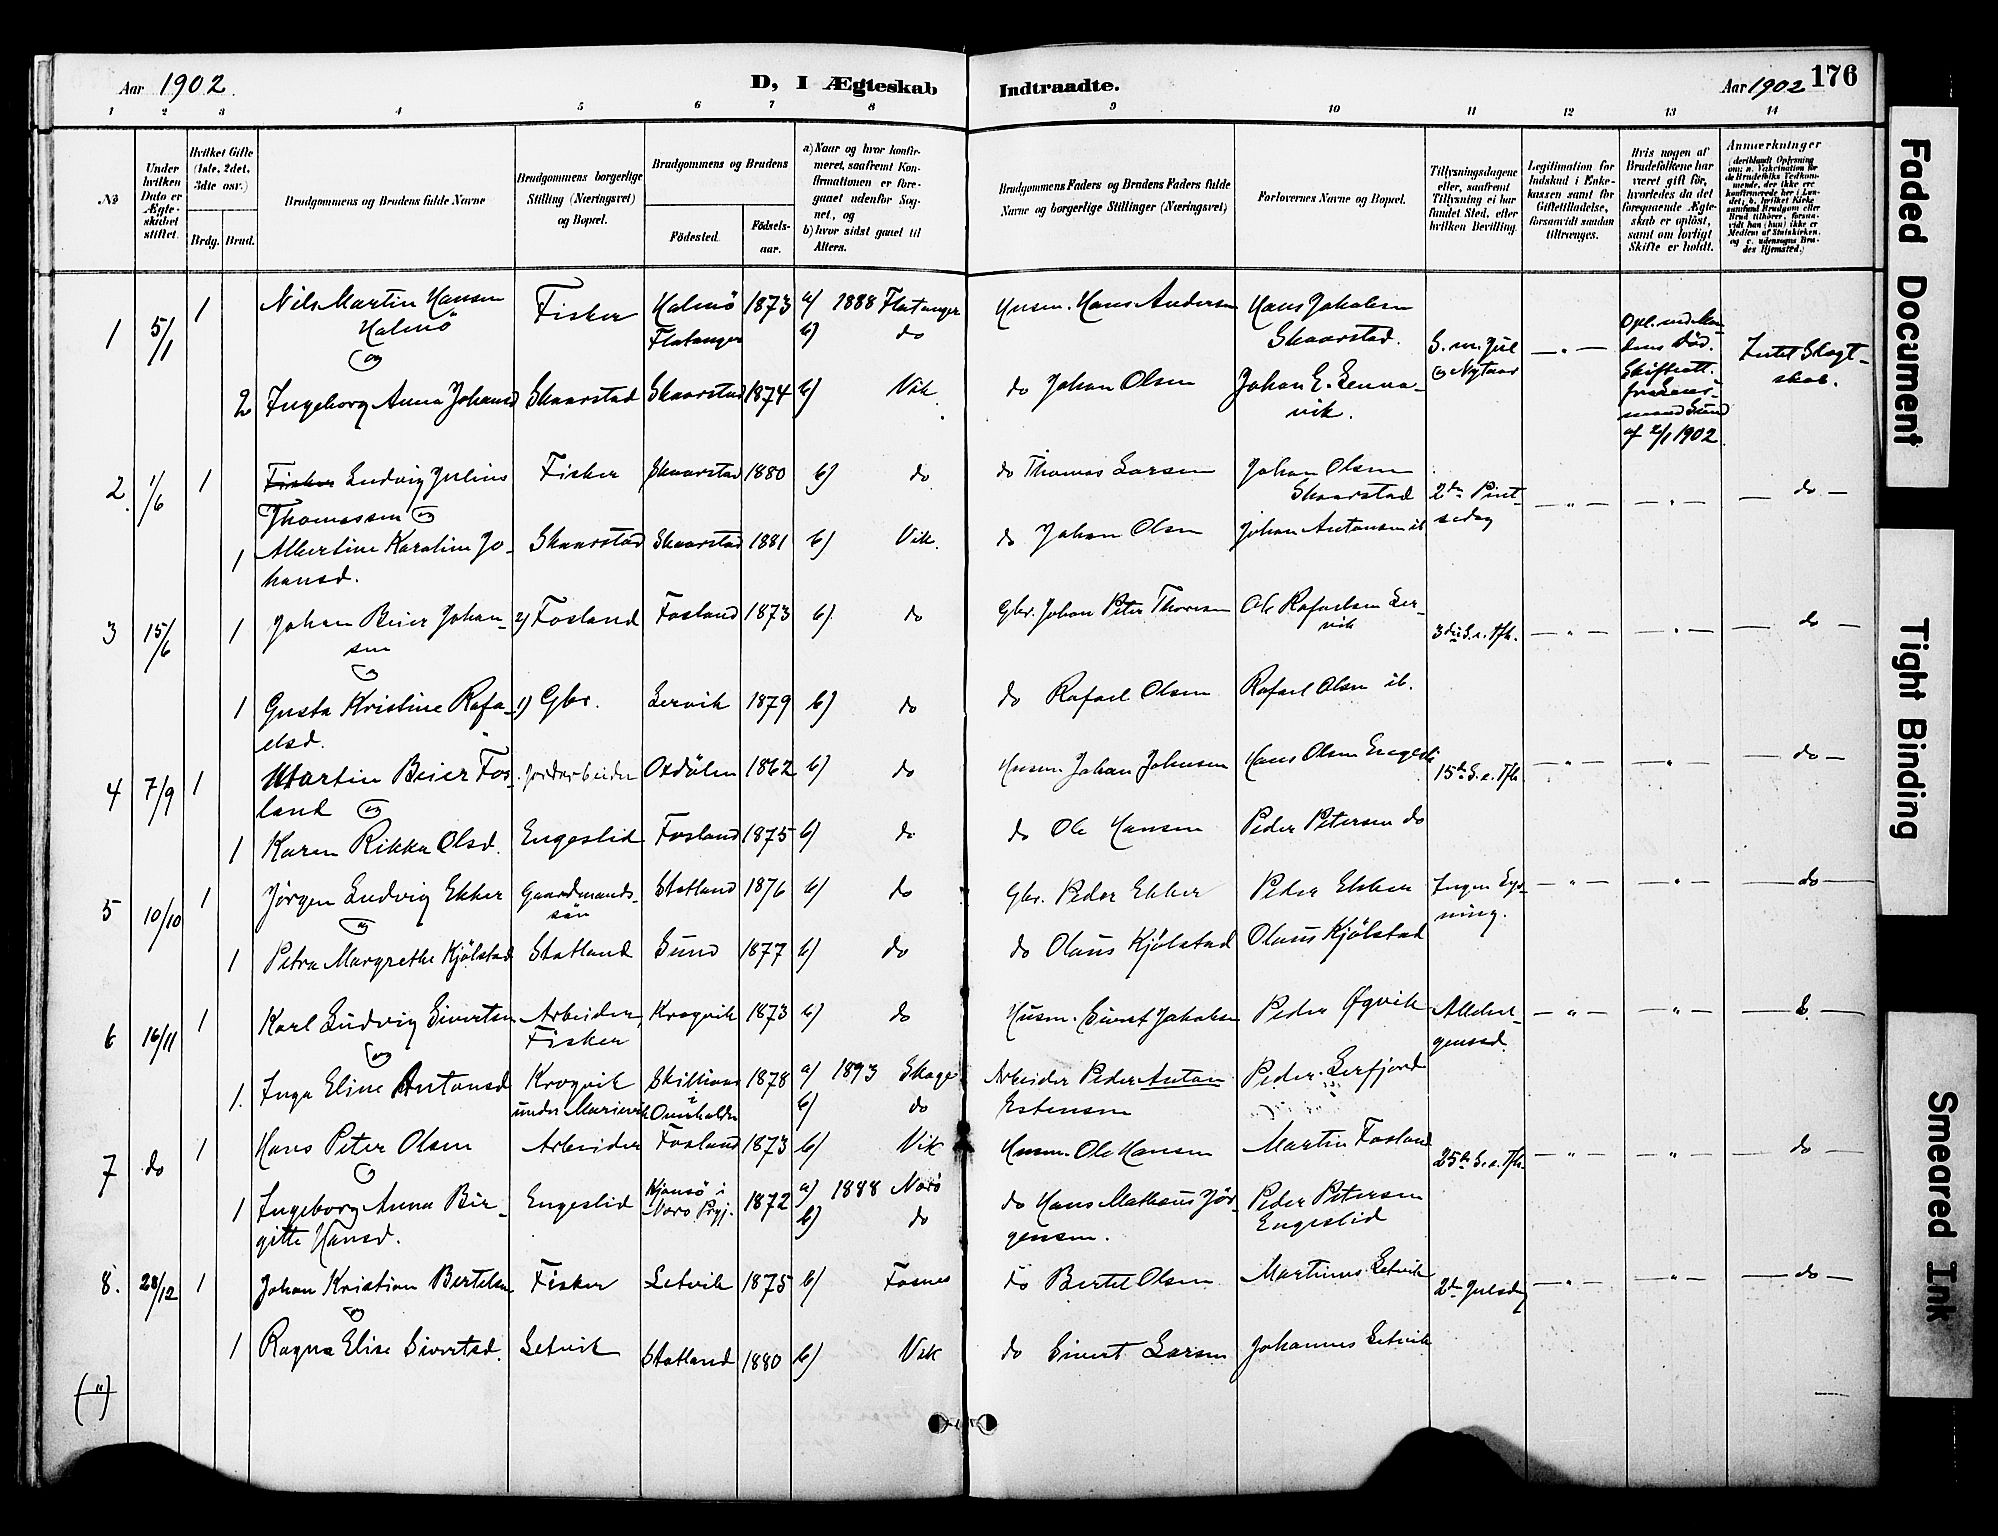 Aar 1902. D, I Ægteskab Indtraadte. Aar 1902 176
1 2 3 4 5 6 7 8 9 10 11 12 13 14
No
Under hvilken Dato er Ægteskabet stiftet.
Hvilket Gifte (1ste, 2det, 3die osv.)
Brdg. Brud.
Brudgommens og Brudens fulde Navne
Brudgommens borgerlige Stilling (Næringsvei) og Bopæl.
Brudgommens og Brudens
Fødested. Fødselsaar.
a) Naar og hvor konfirmeret, saafremt Konfirmationen er foregaaet udenfor Sognet, og
b) hvor sidst gaaet til Alters.
Brudgommens Faders og Brudens Faders fulde Navne og borgerlige Stillinger (Næringsvei)
Forlovernes Navne og Bopæl.
Tillysningsdagene eller, saafremt Tillysning ei har fundet Sted, efter hvilken Bevilling.
Legitimation for Indskud i Enkekassen samt for Giftetilladelse, forsaavidt saadan tiltrænges.
Hvis nogen af Brudefolkene har været gift før, hvorledes da det foregaaende Ægteskab er opløst, samt om lovligt Skifte er holdt.
Anmærkninger
1 5/1 1 Nils Martin Hansen Fisker Halmö 1873 a) 1888 Flatanger Husm. Hans Andersen Hans Jakobsen
Halmö Flatanger b) do Skaarstad. S. m. Jul
og & Nytaar — " —
2 Ingeborg Anna Johansd Skaarstad Skaarstad 1874 b) Vik do Johan Olsen Johan E.
vik.
af 2/1 1902.
2. 1/6 1 Fisker Ludvig Julius Fisker Skaarstad 1880 b) do do Thomas Larsen Johan Olsen
Thomassen og Skaarstad 2den Pint- — " — — " — — do —
1 Albertine Karoline Jo- Skaarstad Skaarstad 1881 b) Vik. do Johan Olsen Johan Antonsen ib sedag
hansd.
3 15/6 1 Johan Beier Johan- 2) Fosland Fosland 1873 b) do Gbr. Johan Peter Thoresen Ole Rafaelsen Ler-
sen vik 3die S. e. Tfh. — " — — " — — do —
og
1 Gusta Kristine Rafa- 1) Gbr. Lervik 1879 b) do do Rafael Olsen Rafael Olsen ib.
elsd.
4 7/9 1 Martin Beier Fos- Jordarbeider Oxdölen 1862 b) do Husm. Johan Johnsen Hans Olsen 15de S. e. Tfh. — " — — " — — do —
land og
1 Karen Rikka Olsd. Engeslid Fosland 1875 b) do do Ole Hansen Peder Petersen do
5 10/10 1 Jörgen Ludvig Ekker Gaardmands- Statland 1876 b) do Gbr. Peder Ekker Peder Ekker Ingen Lys- — " — — " — — do —
og sön ning.
1 Petra Margrethe Kjölstad Statland Sund 1877 b) do do Olaus Kjölstad Olaus Kjölstad
6 16/11 1 Karl Ludvig Sivertsen Arbeider, Krogvik 1873 b) do Husm. Sivert Jakobsen Peder Øgvik Allehel- — " — — " —
og Fisker gensd.
1. Inga Eline Antonsd Krogvik 1878 a) 1893 Skage Arbeider Peder Anton Peder Lerfjord
under b) do Estensen
7 do 1 Hans Peter Olsen Arbeider Fosland 1873 b) Vik Husm. Ole Hansen Martin Fosland 25de S. e. Tfh. — " — — " — — do —
og
1 Ingeborg Anna Bir- Engeslid i 1872 a) 1888 Nærö do Hans Mathæus Jör- Peder Petersen
gitte Hansd. b) do gensen. Engeslid
8. 28/12 1 Johan Kristian Bertelsen Fisker Setvik 1875 b) Fosnes do Bertel Olsen Martinus Setvik 2den Julsdag — " — — " — — do —
og
1 Ragna Elise Sivertsd. Setvik Statland 1880 b) Vik do Sivert Larsen Johannes Setvik
Faded Document
Tight Binding
Smeared Ink